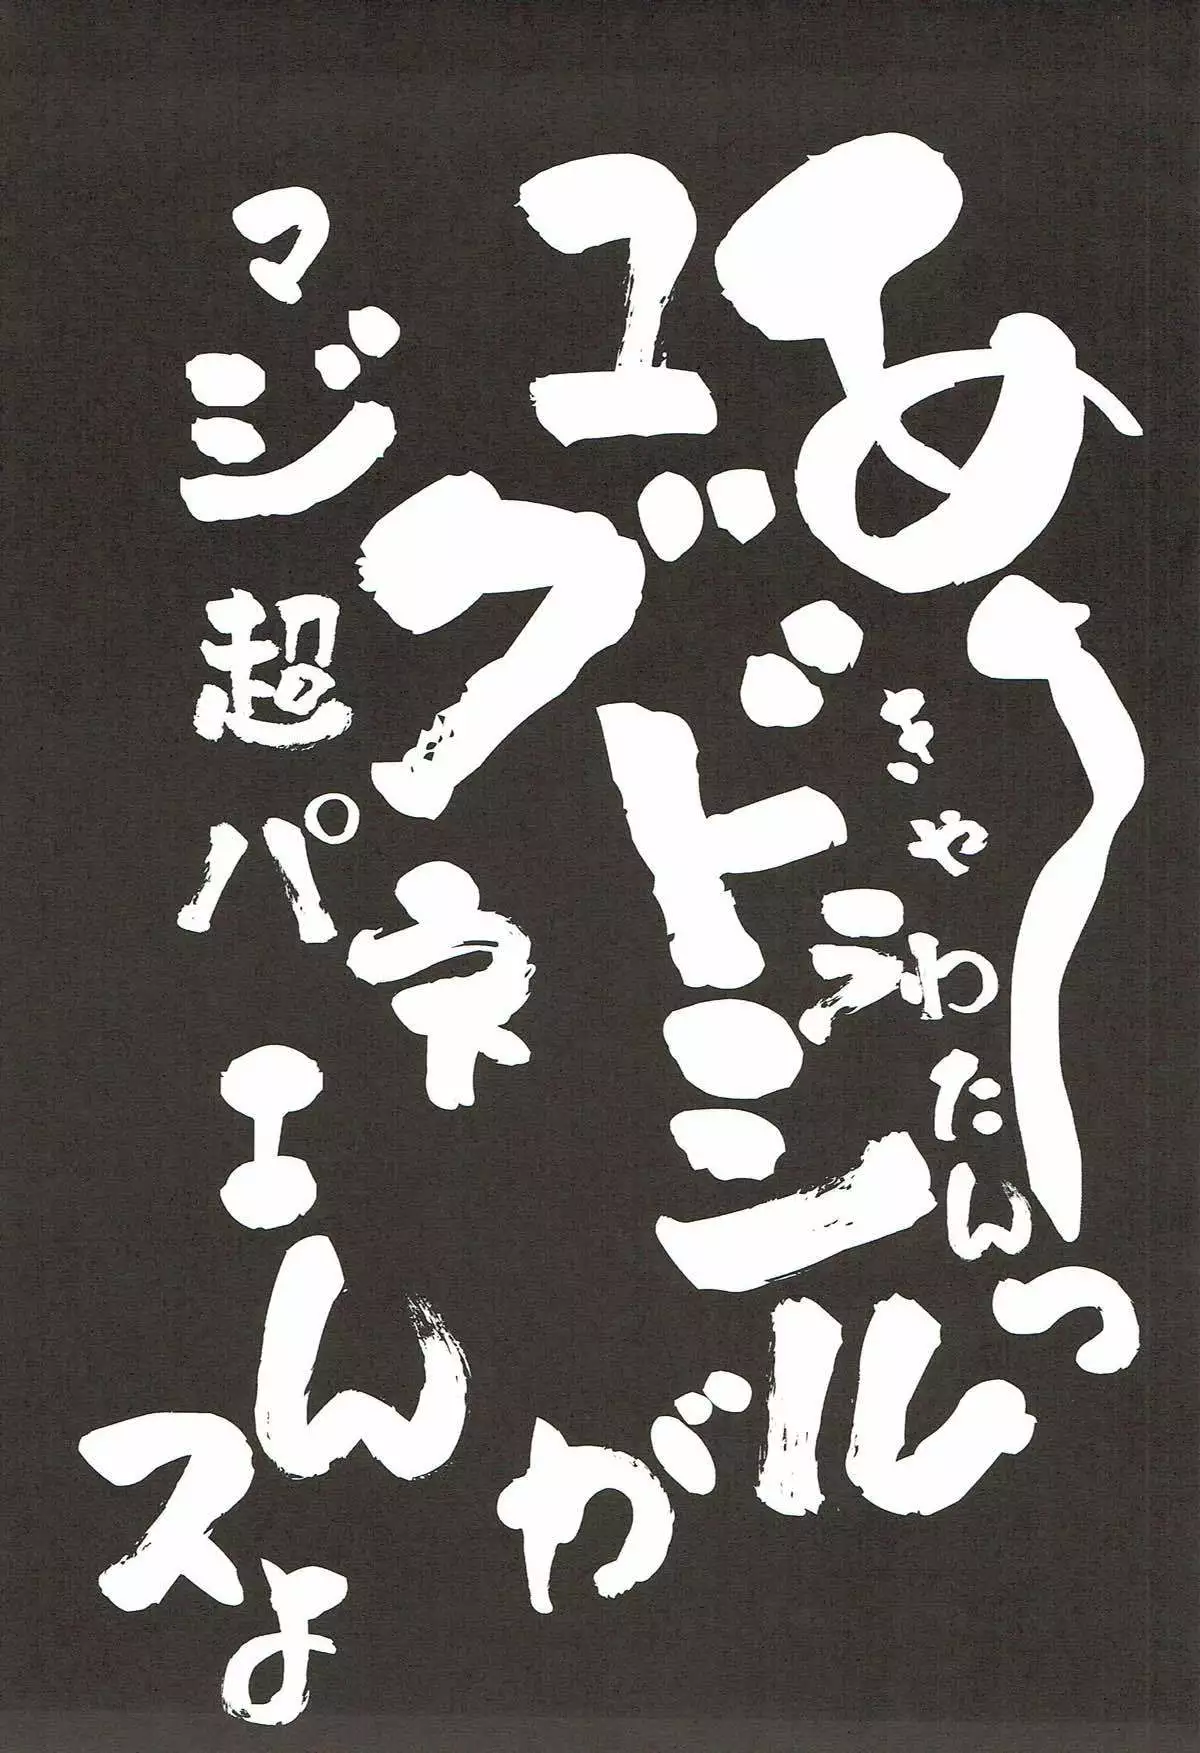 あーっ
きゃわたん
ユグドラシルが
マジ超パネエんスよ